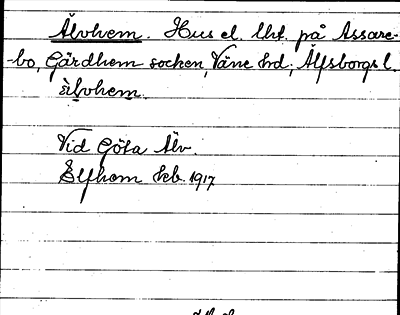 Älvhem. Hus el. lht. på Assare-
-bo, Gärdhem socken, Väne hd, Älfsborgs l.
älvhem.
Vid Göta Älv.
Elfhem kb. 1917